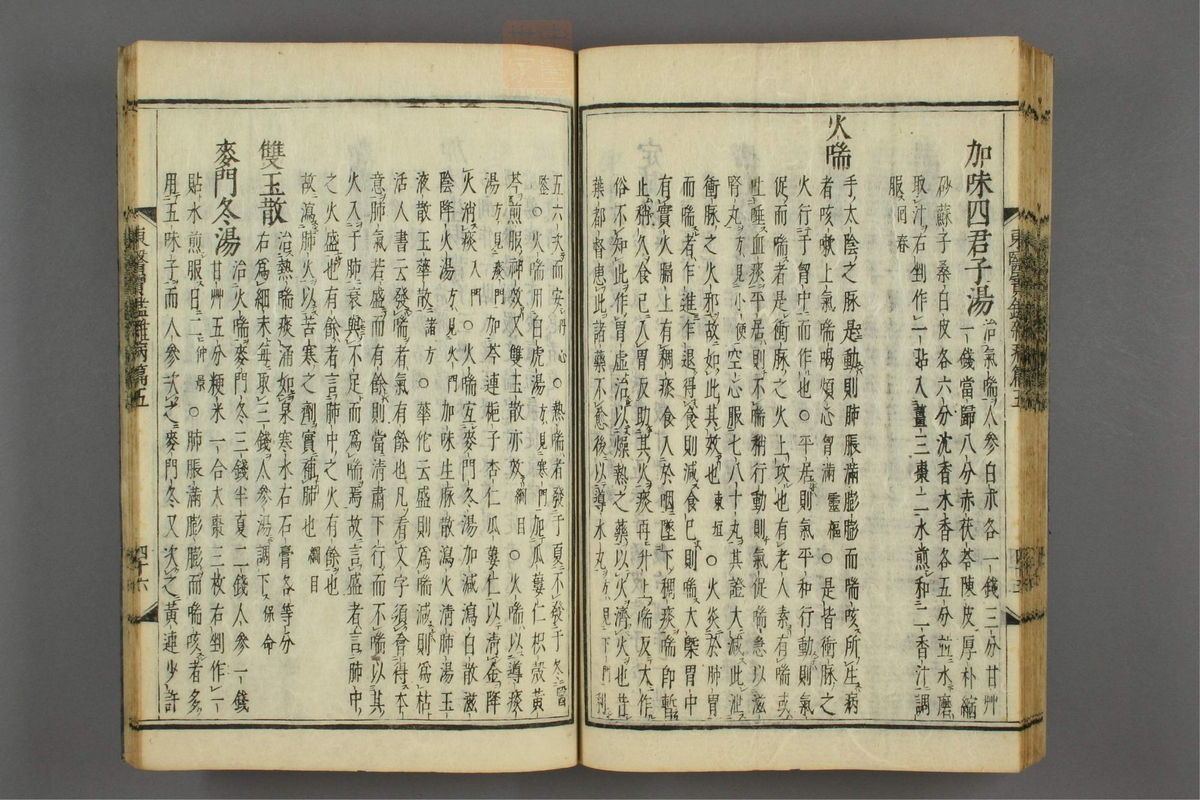 加味四君子湯
治氣喘人參白朮各一錢三分甘艸
一錢當歸八分赤茯苓陳皮厚朴縮
砂蘇子桑白皮各六分沈香木香各五分並水磨
取汁右剉作一貼入薑三棗二水煎和二香汁調
服回春
火喘
手太陰之脉是動則肺脹滿膨膨而喘咳所生病
者咳嗽上氣喘喝煩心胷滿靈樞○是皆衝脉之
火行于胷中而作也○平居則氣平和行動則氣
促而喘者是衝脉之火上攻也有老人素有喘或
吐唾血痰平居則不喘稍行動則氣促喘急以滋
腎丸方見小便空心服七八十丸其證大減此泄
衝脉之火邪故如此其效也東垣○火炎於肺胃
而喘者乍進乍退得食則減食已則喘大槩胃中
有實火膈上有稠痰食入於咽墜下稠痰喘卽暫
止稍久食已入胃反助其火痰再升上喘反大作
俗不知此作胃虛治以燥熱之藥以火濟火也昔
葉都督患此諸藥不愈後以導水丸方見下門利
五六次而安丹心○熱喘者發于夏不發于冬醫
鑒○火喘用白虎湯方見寒門加瓜蔞仁枳殼黃
芩煎服神效又雙玉散亦效綱目○火喘以導痰
湯方見痰門加芩連梔子杏仁瓜蔞仁以清金降
火消痰入門○火喘宜麥門冬湯加減瀉白散滋
陰降火湯方見火門加味生脉散瀉火清肺湯玉
液散玉華散諸方○華佗云盛則爲喘減則爲枯
活人書云發喘者氣有餘也凡看文字須會得本
意肺氣若盛而有餘則當清肅下行而不喘以其
火入于肺衰與不足而爲喘焉故言盛者言肺中
之火盛也有餘者言肺中之火有餘也
故瀉肺火以苦寒之劑實補肺也綱目
雙玉散
治熱喘痰涌如泉寒水石石膏各等分
右爲細末每取三錢人參湯調下保命
麥門冬湯
治火喘麥門冬三錢半夏二錢人參一錢
甘艸五分粳米一合大棗三枚右剉作一
貼水煎服日二仲景○肺脹滿膨膨而喘咳者多
用五味子而人參次之麥門冬又次之黃連少許
東醫寶鑑雜病篇五
四十六